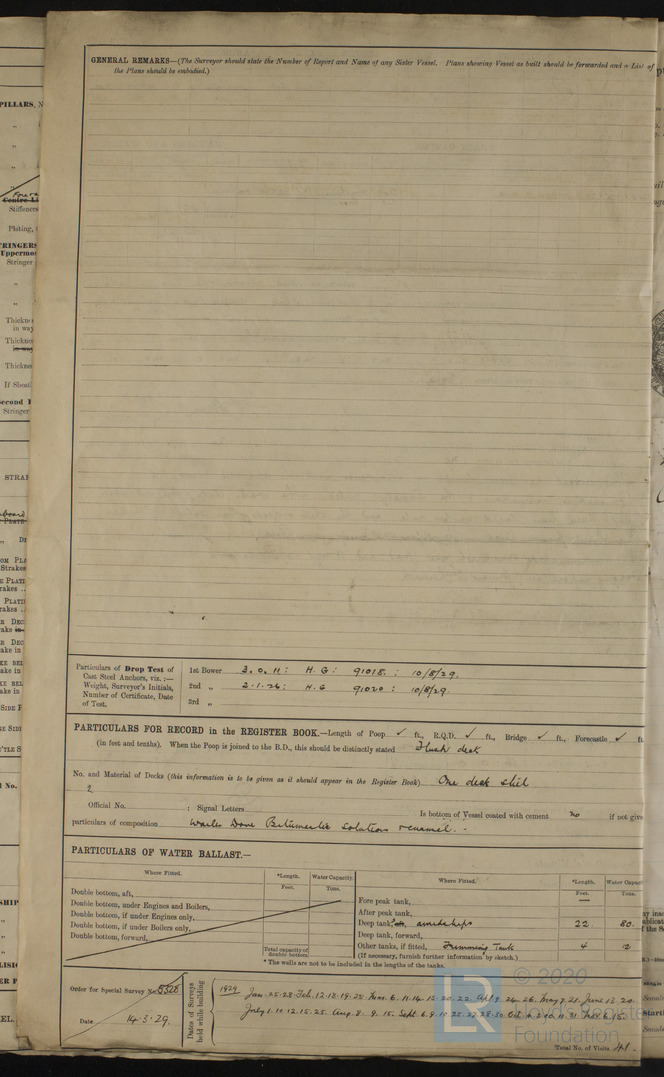 GENERAL REMARKS—(The Surveyor should state the Number of Report and Name of any Sister Vessel. Plans showing Vessel as built should be forwarded and a List of
the Plans should be embodied.)
Particulars of Drop Test of
Cast Steel Anchors, viz. :—
Weight, Surveyor's Initials,
Number of Certificate, Date
of Test.
1st Bower 3.0.11 : H.G : 91018 : 10/8/29.
2nd „ 2.1.26 : H.G 91020 : 10/8/29.
3rd „
PARTICULARS FOR RECORD in the REGISTER BOOK.—Length of Poop ✓ ft., R.Q.D. ✓ ft., Bridge ✓ ft., Forecastle ✓ ft.
(in feet and tenths). When the Poop is joined to the B.D., this should be distinctly stated Flush deck
No. and Material of Decks (this information is to be given as it should appear in the Register Book) One deck steel
Official No. ; Signal Letters Is bottom of Vessel coated with cement no if not give
particulars of composition Wailes Dove Bitumastic solution & enamel.
PARTICULARS OF WATER BALLAST.—
Where Fitted. *Length. Water Capacity.
Feet. Tons.
Double bottom, aft,
Double bottom, under Engines and Boilers,
Double bottom, if under Engines only,
Double bottom, if under Boilers only,
Double bottom, forward,
Total capacity of double bottom
Where Fitted. *Length. Water Capac
Feet. Tons.
Fore peak tank, —
After peak tank,
Deep tank, amidships 22 80.
Deep tank, forward,
Other tanks, if fitted, Trimming Tank 4 12
(If necessary, furnish further information by sketch.)
* The wells are not to be included in the lengths of the tanks.
Order for Special Survey No. 5328
Date 14.3.29.
Dates of Surveys held while building
1929 Jan. 25.28 Feb. 12.18.19.25
July 1.10.12.15.25. Aug. 8. 9. 15. Sept
Total No. of Visits 41.
© 2020
Lloyd's Register
Foundation
LR